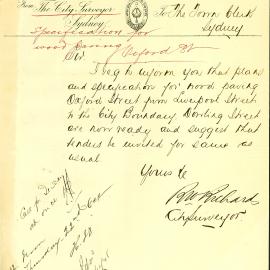 From The City Surveyor
Sydney
To The Town Clerk
Sydney
Specification for
wood paving
Oxford St
Sir
I beg to inform you that plans
and specification for wood paving
Oxford Street from Liverpool Street
to the City Boundary Dowling Street
are now ready and suggest that
tenders be invited for same as
usual
Yours &c
R W Richards
City Surveyor
at once
Thursday 22nd